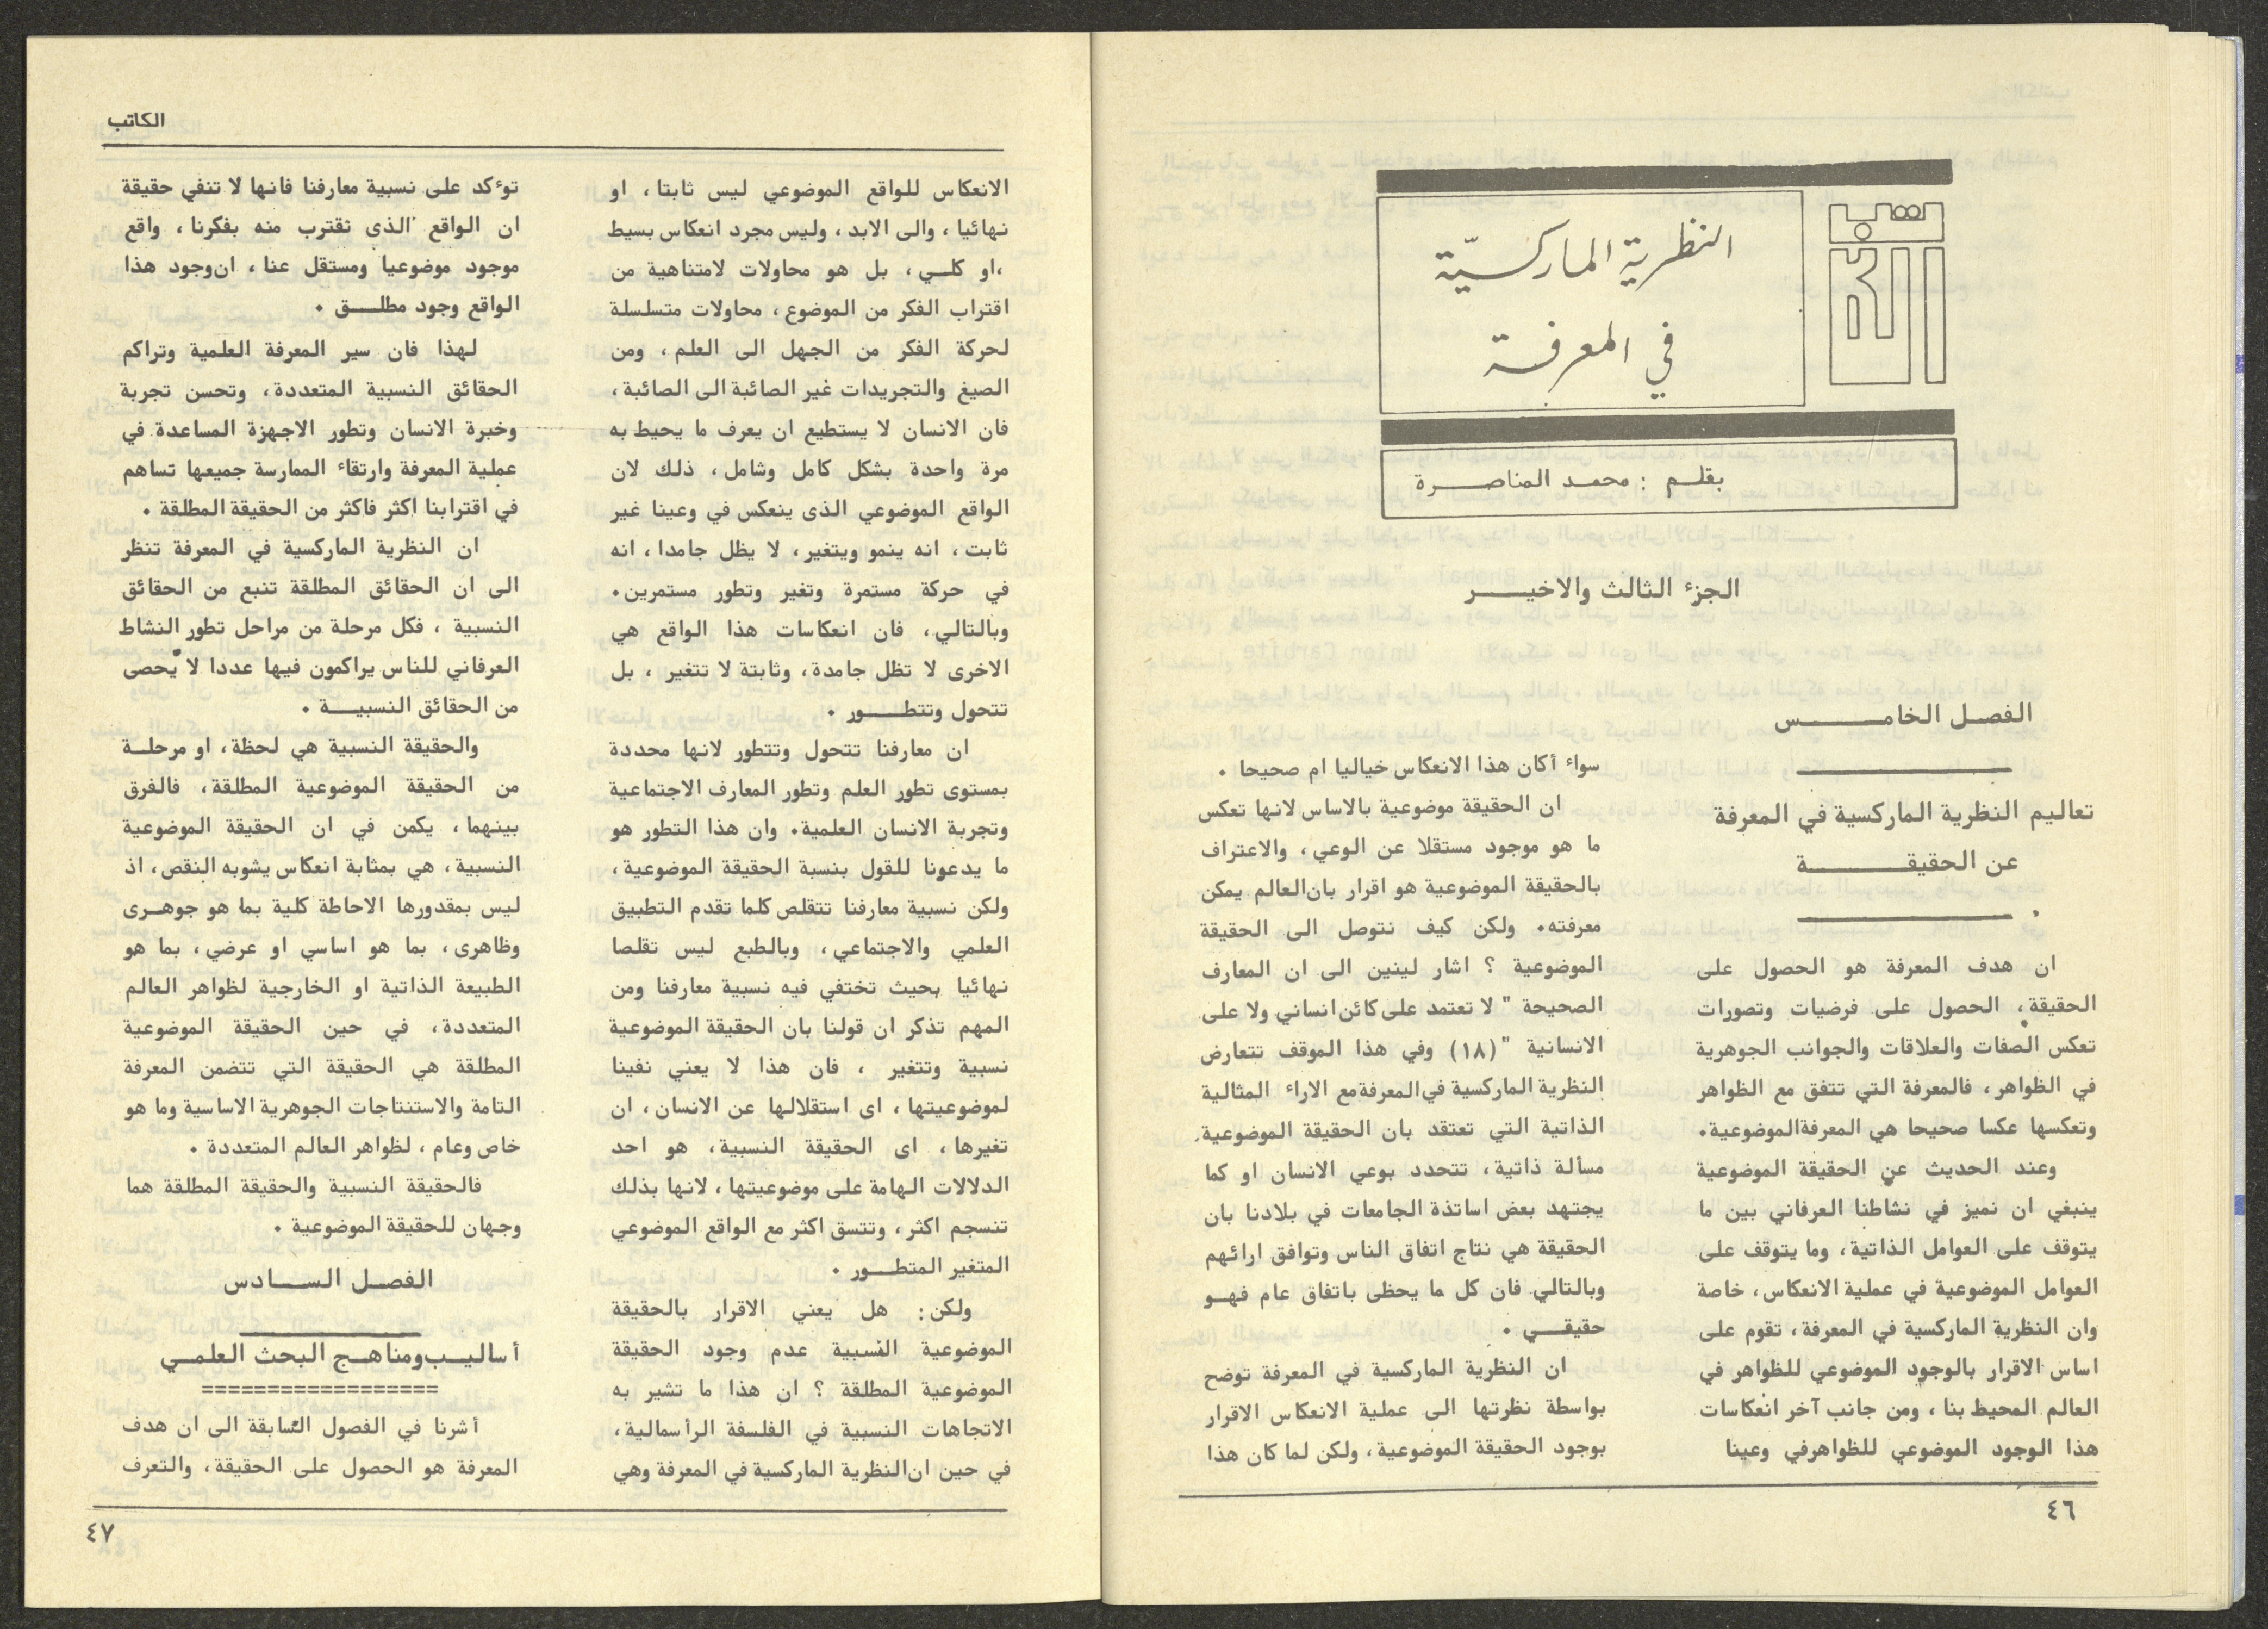 الكاتب
النظرية الماركسيّة
في المعرفة
بقلـم : محمـد المناصـــرة
الجزء الثالث والاخيـــــر
الفصـل الخامـــــــس
تعاليم النظرية الماركسية في المعرفة
عن الحقيقـــــــــــة
ان هدف المعرفة هو الحصول على
الحقيقة، الحصول على فرضيات وتصورات
تعكس الصفات والعلاقات والجوانب الجوهرية
في الظواهر، فالمعرفة التي تتفق مع الظواهر
وتعكسها عكسا صحيحا هي المعرفةالموضوعية.
وعند الحديث عن الحقيقة الموضوعية
ينبغي ان نميز في نشاطنا العرفاني بين ما
يتوقف على العوامل الذاتية، وما يتوقف على
العوامل الموضوعية في عملية الانعكاس، خاصة
وان النظرية الماركسية في المعرفة، تقوم على
اساس الاقرار بالوجود الموضوعي للظواهر في
العالم المحيط بنا ، ومن جانب آخر انعكاسات
هذا الوجود الموضوعي للظواهرفي وعينا
سواء أكان هذا الانعكاس خياليا ام صحيحا .
ان الحقيقة موضوعية بالاساس لانها تعكس
ما هو موجود مستقلا عن الوعي، والاعتراف
بالحقيقة الموضوعية هو اقرار بان العالم يمكن
معرفته. ولكن كيف نتوصل الى الحقيقة
الموضوعية ؟ اشار لينين الى ان المعارف
الصحيحة " لا تعتمد على كائن انساني ولا على
الانسانية "(١٨) وفي هذا الموقف تتعارض
النظرية الماركسية في المعرفة مع الاراء المثالية
الذاتية التي تعتقد بان الحقيقة الموضوعية
مسألة ذاتية، تتحدد بوعي الانسان او كما
يجتهد بعض اساتذة الجامعات في بلادنا بان
الحقيقة هي نتاج اتفاق الناس وتوافق ارائهم
وبالتالي فان كل ما يحظى باتفاق عام فهــو
حقيقـــي .
ان النظرية الماركسية في المعرفة توضح
بواسطة نظرتها الى عملية الانعكاس الاقرار
بوجود الحقيقة الموضوعية، ولكن لما كان هذا
٤٦
الكاتب
الانعكاس للواقع الموضوعي ليس ثابتا، او
نهائيا ، والى الابد ، وليس مجرد انعكاس بسيط
،او كلـــي، بل هو محاولات لامتناهية من
اقتراب الفكر من الموضوع، محاولات متسلسلة
لحركة الفكر من الجهل الى العلم، ومن
الصيغ والتجريدات غير الصائبة الى الصائبة،
فان الانسان لا يستطيع ان يعرف ما يحيط به
مرة واحدة بشكل كامل وشامل، ذلك لان
الواقع الموضوعي الذى ينعكس في وعينا غير
ثابت، انه ينمو ويتغير، لا يظل جامدا، انه
في حركة مستمرة وتغير وتطور مستمرين.
وبالتالي، فان انعكاسات هذا الواقع هي
الاخرى لا تظل جامدة، وثابتة لا تتغير ، بل
تتحول وتتطـــــور .
ان معارفنا تتحول وتتطور لانها محددة
بمستوى تطور العلم وتطور المعارف الاجتماعية
وتجربة الانسان العلمية. وان هذا التطور هو
ما يدعونا للقول بنسبة الحقيقة الموضوعية،
ولكن نسبية معارفنا تتقلص كلما تقدم التطبيق
العلمي والاجتماعي، وبالطبع ليس تقلصا
نهائيا بحيث تختفي فيه نسبية معارفنا ومن
المهم تذكر ان قولنا بان الحقيقة الموضوعية
نسبية وتتغير ، فان هذا لا يعني نفينا
لموضوعيتها، اى استقلالها عن الانسان، ان
تغيرها، اى الحقيقة النسبية، هو احد
الدلالات الهامة على موضوعيتها ، لانها بذلك
تنسجم اكثر، وتتسق اكثر مع الواقع الموضوعي
المتغير المتطــــور .
ولكن: هل يعني الاقرار بالحقيقة
الموضوعية النسبية عدم وجود الحقيقة
الموضوعية المطلقة ؟ ان هذا ما تشير به
الاتجاهات النسبية في الفلسفة الرأسمالية،
في حين ان النظرية الماركسية في المعرفة وهي
توءكد على نسبية معارفنا فانها لا تنفي حقيقة
ان الواقع الذى نقترب منه بفكرنا، واقع
موجود موضوعيا ومستقل عنا، ان وجود هذا
الواقع وجود مطلــــق .
لهذا فان سير المعرفة العلمية وتراكم
الحقائق النسبية المتعددة، وتحسن تجربة
وخبرة الانسان وتطور الاجهزة المساعدة في
عملية المعرفة وارتقاء الممارسة جميعها تساهم
في اقترابنا اكثر فاكثر من الحقيقة المطلقة .
ان النظرية الماركسية في المعرفة تنظر
الى ان الحقائق المطلقة تنبع من الحقائق
النسبية ، فكل مرحلة من مراحل تطور النشاط
العرفاني للناس يراكمون فيها عددا لا يحصى
من الحقائق النسبيــــة .
والحقيقة النسبية هي لحظة، او مرحلــة
من الحقيقة الموضوعية المطلقة، فالفرق
بينهما، يكمن في ان الحقيقة الموضوعية
النسبية، هي بمثابة انعكاس يشوبه النقص، اذ
ليس بمقدورها الاحاطة كلية بما هو جوهــرى
وظاهرى، بما هو اساسي او عرضي، بما هو
الطبيعة الذاتية او الخارجية لظواهر العالم
المتعددة، في حين الحقيقة الموضوعية
المطلقة هي الحقيقة التي تتضمن المعرفة
التامة والاستنتاجات الجوهرية الاساسية وما هو
خاص وعام ، لظواهر العالم المتعددة .
فالحقيقة النسبية والحقيقة المطلقة هما
وجهان للحقيقة الموضوعية .
الفصـل الســـادس
أساليــب ومناهــج البحث العلمــي
==================
أشرنا في الفصول السابقة الى ان هدف
المعرفة هو الحصول على الحقيقة، والتعرف
٤٧